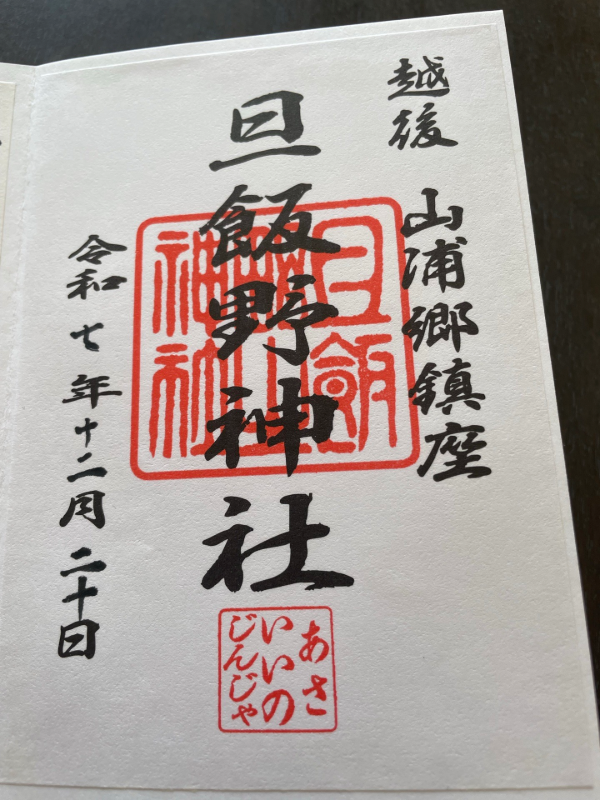 越後 山浦郷鎮座
旦飯野神社
令和七年十二月二十日
旦飯
野
神社
あさ
いいの
じんじゃ